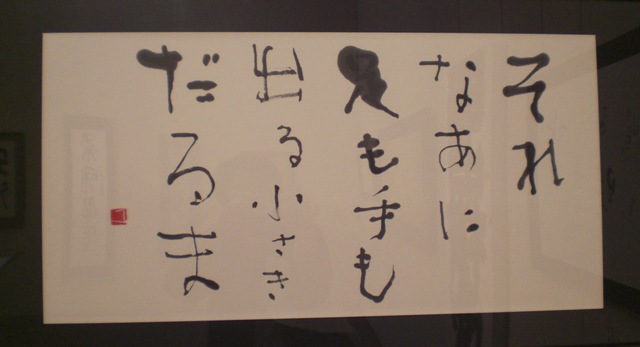 それ
なあに
足も手も
出る小さき
だるま